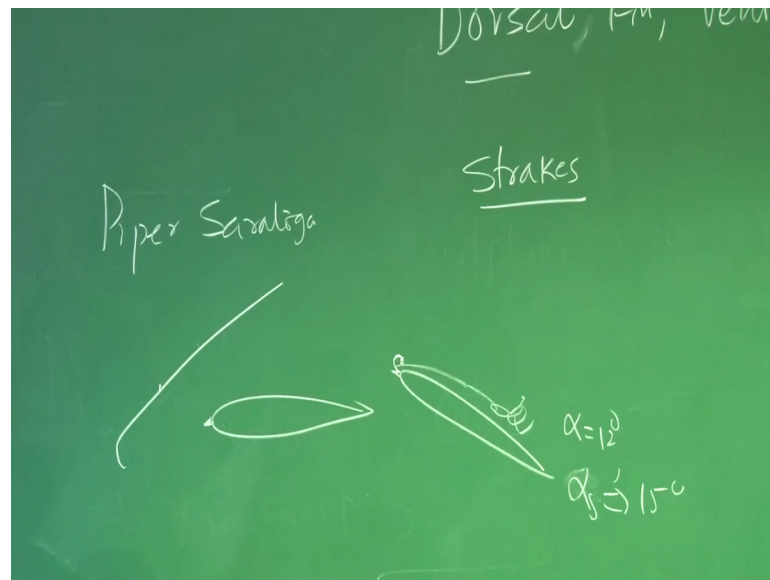 Dorsal Fin, Vent
Strakes
Piper Saratoga
α=12°
αs ⇒ 15°